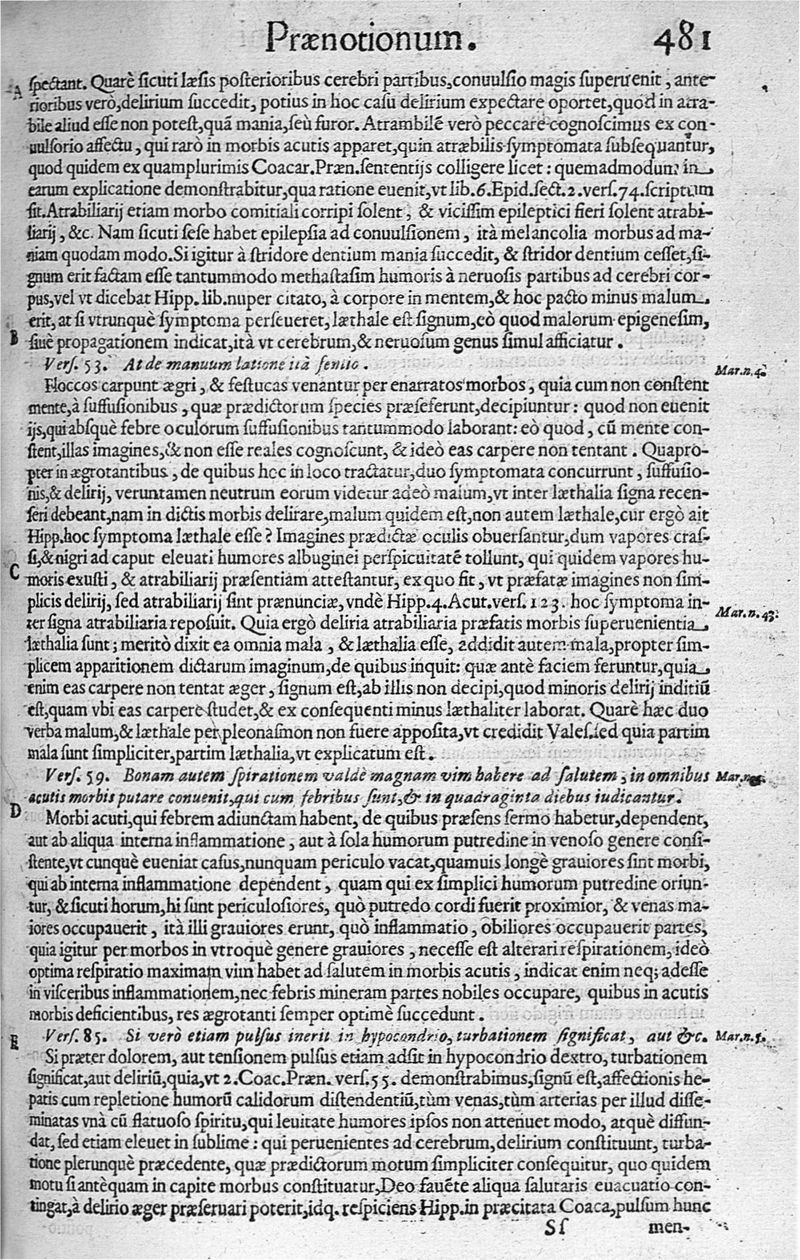 Prænotionum. 481
A spectant. Quarè sicuti læsis posterioribus cerebri partibus, conuulsio magis superuenit, ante-
rioribus verò, delirium succedit, potius in hoc casu delirium expectare oportet, quod in atra-
bile aliud esse non potest, quã mania, seù furor. Atrambilẽ verò peccare cognoscimus ex con-
uulsorio affectu, qui rarò in morbis acutis apparet, quin atræbilis symptomata subsequantur,
quod quidem ex quamplurimis Coacar. Præn. sententijs colligere licet: quemadmodum in
earum explicatione demonstrabitur, qua ratione euenit, vt lib. 6. Epid. sect. 2. vers. 74. scriptum
sit. Atrabiliarij etiam morbo comitiali corripi solent, & vicissim epileptici fieri solent atrabi-
liarij, &c. Nam sicuti sese habet epilepsia ad conuulsionem, ità melancolia morbus ad ma-
niam quodam modo. Si igitur à stridore dentium mania succedit, & stridor dentium cesset, si-
gnum erit factam esse tantummodo methastasim humoris à neruosis partibus ad cerebri cor-
pus, vel vt dicebat Hipp. lib. nuper citato, à corpore in mentem, & hoc pacto minus malum
erit, at si vtrunquè symptoma perseueret, læthale est signum, eò quod malorum epigenesim,
B siuè propagationem indicat, ità vt cerebrum, & neruosum genus simul afficiatur.
Vers. 53. At de manuum latione ità sentio. Mar. n. 4.
Floccos carpunt ægri, & festucas venantur per enarratos morbos, quia cum non constent
mente, à suffusionibus, quæ prædictorum species præseferunt, decipiuntur: quod non euenit
ijs, qui absquè febre oculorum suffusionibus tantummodo laborant: eò quod, cũ mente con-
stent, illas imagines, & non esse reales cognoscunt, & ideò eas carpere non tentant. Quapro-
pter in ægrotantibus, de quibus hoc in loco tractatur, duo symptomata concurrunt, suffusio-
nis, & delirij, veruntamen neutrum eorum videtur adeò malum, vt inter læthalia signa recen-
seri debeant, nam in dictis morbis delirare, malum quidem est, non autem læthale, cur ergò ait
Hipp. hoc symptoma læthale esse? Imagines prædictæ oculis obuersantur, dum vapores cras-
si, & nigri ad caput eleuati humores albuginei perspicuitatẽ tollunt, qui quidem vapores hu-
C moris exusti, & atrabiliarij præsentiam attestantur, ex quo fit, vt præfatæ imagines non sim-
plicis delirij, sed atrabiliarij sint prænunciæ, vndè Hipp. 4. Acut. vers. 123. hoc symptoma in-
ter signa atrabiliaria reposuit. Quia ergò deliria atrabiliaria præfatis morbis superuenientia Mar. n. 43.
læthalia sunt; meritò dixit ea omnia mala, & læthalia esse, addidit autem mala, propter sim-
plicem apparitionem dictarum imaginum, de quibus inquit: quæ antè faciem feruntur, quia
enim eas carpere non tentat æger, signum est, ab illis non decipi, quod minoris delirij inditiũ
est, quam vbi eas carpere studet, & ex consequenti minus læthaliter laborat. Quarè hæc duo
verba malum, & læthale per pleonasmon non fuere apposita, vt credidit Vales. sed quia partim
mala sunt simpliciter, partim læthalia, vt explicatum est.
Vers. 59. Bonam autem spirationem valdè magnam vim habere ad salutem, in omnibus Mar.
D acutis morbis putare conuenit, qui cum febribus sunt, & in quadraginta diebus iudicantur.
Morbi acuti, qui febrem adiunctam habent, de quibus præsens sermo habetur, dependent,
aut ab aliqua interna inflammatione, aut à sola humorum putredine in venoso genere consi-
stente, vt cunquè eueniat casus, nunquam periculo vacat, quamuis longè grauiores sint morbi,
qui ab interna inflammatione dependent, quam qui ex simplici humorum putredine oriun-
tur, & sicuti horum, hi sunt periculosiores, quò putredo cordi fuerit proximior, & venas ma-
iores occupauerit, ità illi grauiores erunt, quò inflammatio, obiliores occupauerit partes,
quia igitur per morbos in vtroquè genere grauiores, necesse est alterari respirationem, ideò
optima respiratio maximam vim habet ad salutem in morbis acutis, indicat enim neq; adesse
in visceribus inflammationem, nec febris mineram partes nobiles occupare, quibus in acutis
morbis deficientibus, res ægrotanti semper optimè succedunt.
E Vers. 85. Si verò etiam pulsus inerit in hypocondrio, turbationem significat, aut &c. Mar. n. 5.
Si præter dolorem, aut tensionem pulsus etiam adsit in hypocondrio dextro, turbationem
significat, aut deliriũ, quia, vt 2. Coac. Præn. vers. 55. demonstrabimus, signũ est, affectionis he-
patis cum repletione humorũ calidorum distendentiũ, tùm venas, tùm arterias per illud disse-
minatas vnà cũ flatuoso spiritu, qui leuitate humores ipsos non attenuet modo, atquè diffun-
dat, sed etiam eleuet in sublime: qui peruenientes ad cerebrum, delirium constituunt, turba-
tione plerunquè præcedente, quæ prædictorum motum simpliciter consequitur, quo quidem
motu si antèquam in capite morbus constituatur, Deo fauẽte aliqua salutaris euacuatio con-
tingat, à delirio æger præseruari poterit, idq. respiciens Hipp. in præcitata Coaca, pulsum hunc
Sſ men-